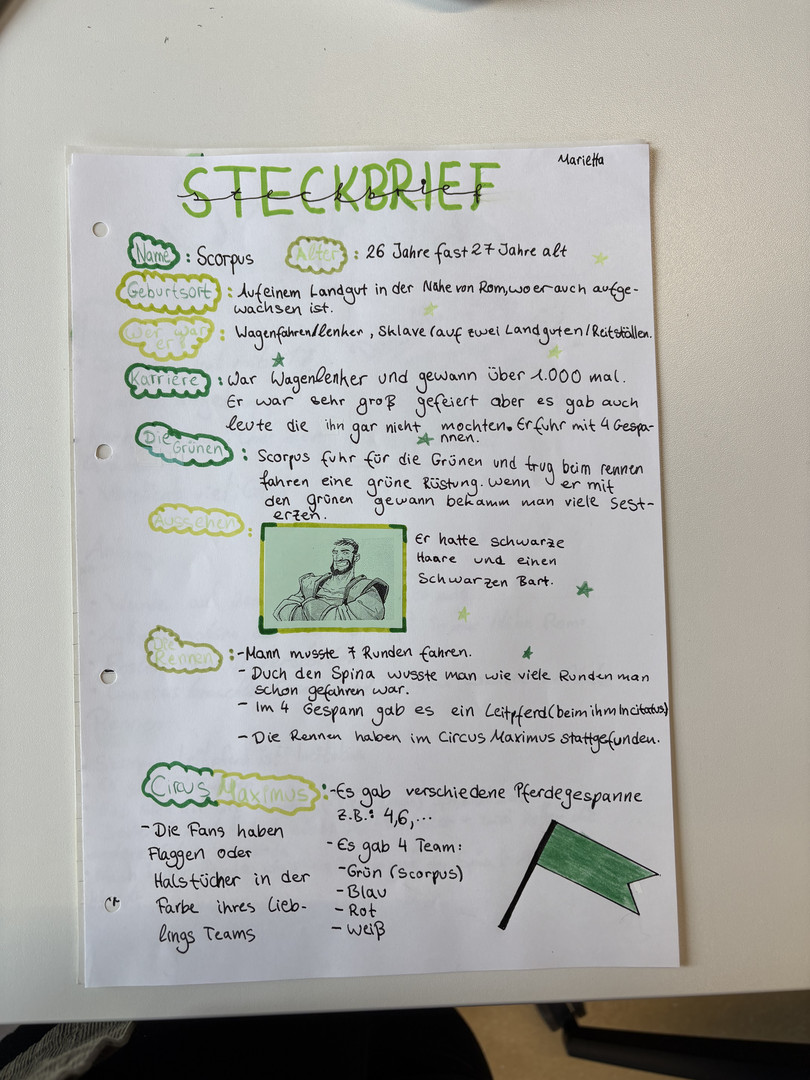 Marietta
STECKBRIEF
steckbrief
Name : Scorpus Alter : 26 Jahre fast 27 Jahre alt
Geburtsort : Auf einem Landgut in der Nähe von Rom, wo er auch aufge-
wachsen ist.
Wer war er? : Wagenfahren/lenker, Sklave (auf zwei Landguten/Reitställen.
Karriere : War Wagenlenker und gewann über 1.000 mal.
Er war sehr groß gefeiert aber es gab auch
leute die ihn gar nicht mochten. Er fuhr mit 4 Gespa-
nnen.
Die Grünen : Scorpus fuhr für die Grünen und trug beim rennen
fahren eine grüne Rüstung. wenn er mit
den grünen gewann bekamm man viele Sest-
erzen.
Aussehen :
Er hatte schwarze
Haare und einen
Schwarzen Bart.
Die Rennen : - Mann musste 7 Runden fahren.
- Duch den Spina wusste man wie viele Runden man
schon gefahren war.
- Im 4 Gespann gab es ein Leitpferd (beim ihm Incitatus)
- Die Rennen haben im Circus Maximus stattgefunden.
Circus Maximus : - Es gab verschiedene Pferdegespanne
z.B.: 4,6,...
- Die Fans haben
Flaggen oder
Halstücher in der
Farbe ihres Lieb-
lings Teams
- Es gab 4 Team:
- Grün (Scorpus)
- Blau
- Rot
- Weiß